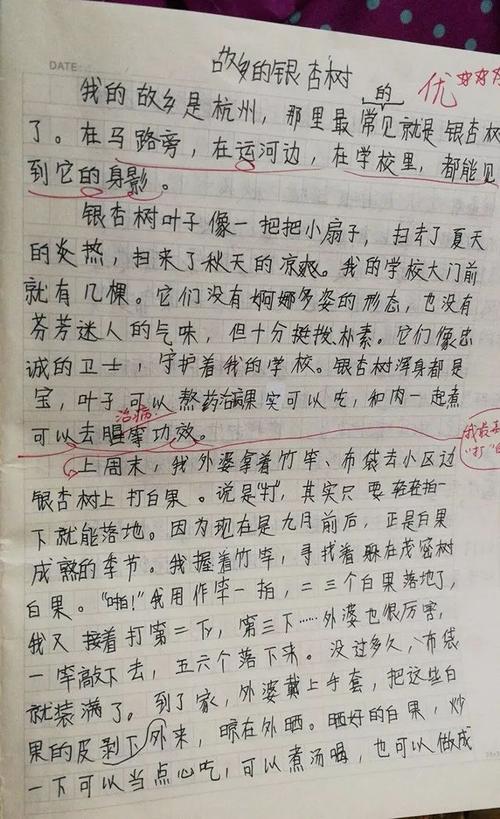 DATE
故乡的银杏树
的
优
我的故乡是杭州，那里最常见就是银杏树
了。在马路旁，在运河边，在学校里，都能见
到它的身影。
银杏树叶子像一把把小扇子，扫去了夏天
的炎热，扫来了秋天的凉爽。我的学校大门前
就有几棵。它们没有婀娜多姿的形态，也没有
芬芳迷人的气味，但十分挺拔朴素。它们像忠
诚的卫士，守护着我的学校。银杏树浑身都是
宝，叶子可以熬药治病果实可以吃，和肉一起煮
治病
可以去腥等功效。
上周末，我外婆拿着竹竿、布袋去小区边
银杏树上打白果。说是“打”，其实只要轻轻拍一
下就能落地。因为现在是九月前后，正是白果
成熟的季节。我握着竹竿，寻找着躲在茂密树
白果。“啪！”我用作竿一拍，二三个白果落地了，
我又接着打第二下，第三下……外婆也很厉害，
一竿敲下去，五六个落下来。没过多久，布袋
就装满了。到了家，外婆戴上手套，把这些白
果的皮剥下外来，晾在外晒。晒好的白果，炒
一下可以当点心吃，可以煮汤喝，也可以做成